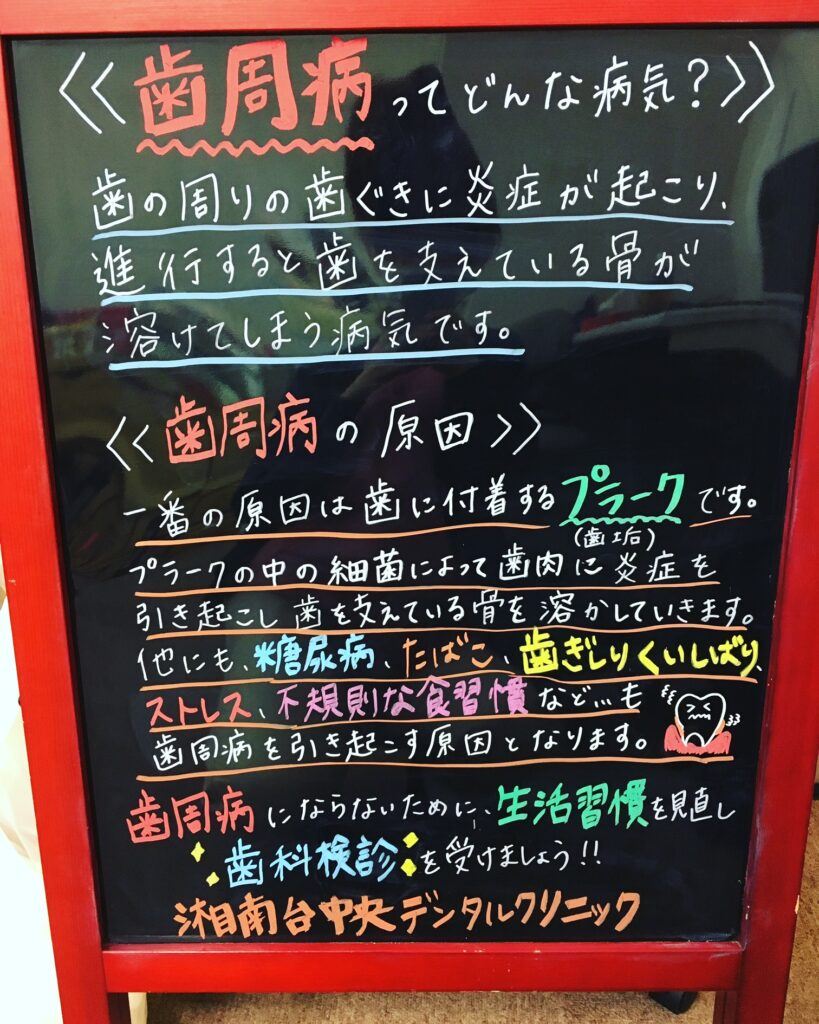 <<歯周病ってどんな病気?>>
歯の周りの歯ぐきに炎症が起こり、
進行すると歯を支えている骨が
溶けてしまう病気です。
<<歯周病の原因>>
一番の原因は歯に付着するプラークです。
(歯垢)
プラークの中の細菌によって歯肉に炎症を
引き起こし歯を支えている骨を溶かしていきます。
他にも、糖尿病、たばこ、歯ぎしりくいしばり、
ストレス、不規則な食習慣など...も
歯周病を引き起こす原因となります。
歯周病にならないために、生活習慣を見直し
歯科検診を受けましょう!!
湘南台中央デンタルクリニック